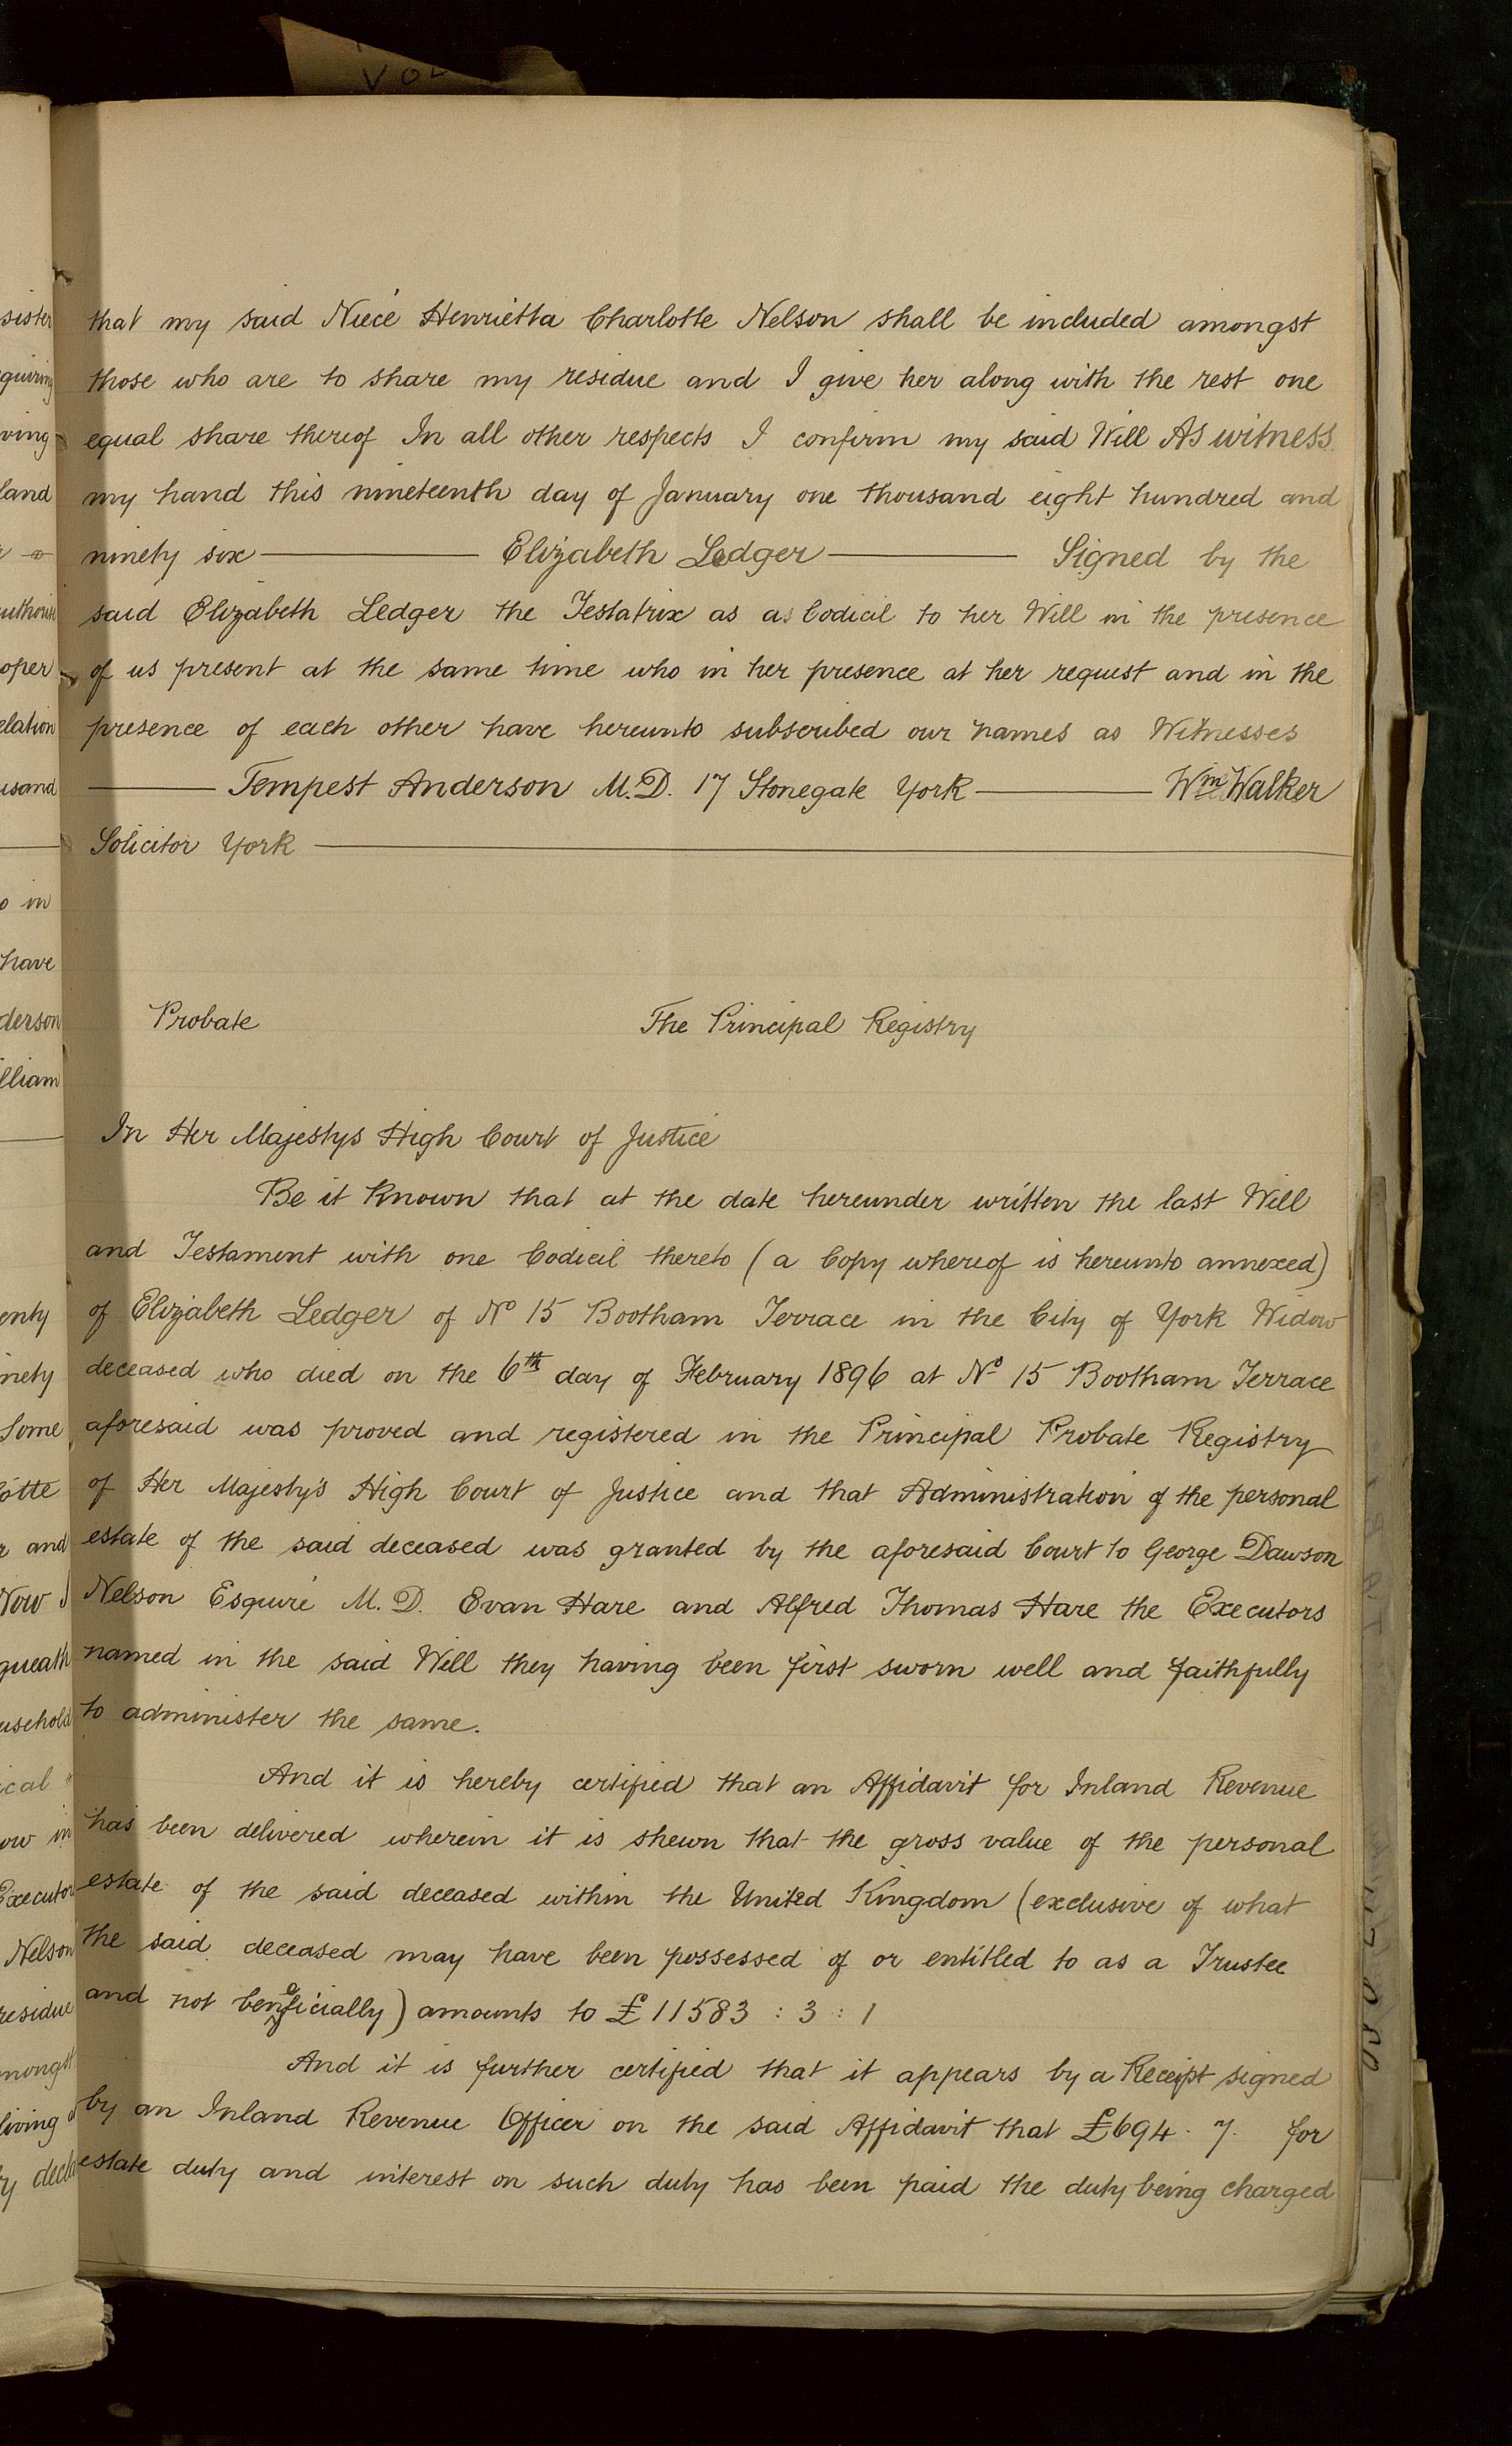 VOL
that my said Niece Henrietta Charlotte Nelson shall be included amongst
those who are to share my residue and I give her along with the rest one
equal share thereof In all other respects I confirm my said Will As witness
my hand this nineteenth day of January one thousand eight hundred and
ninety six — Elizabeth Ledger — Signed by the
said Elizabeth Ledger the Testatrix as as Codicil to her Will in the presence
of us present at the same time who in her presence at her request and in the
presence of each other have hereunto subscribed our names as Witnesses
— Tempest Anderson M.D. 17 Stonegate York — Wm Walker
Solicitor York —
Probate The Principal Registry
In Her Majestys High Court of Justice
Be it Known that at the date hereunder written the last Will
and Testament with one Codicil thereto (a Copy whereof is hereunto annexed)
of Elizabeth Ledger of No 15 Bootham Terrace in the City of York Widow
deceased who died on the 6th day of February 1896 at No 15 Bootham Terrace
aforesaid was proved and registered in the Principal Probate Registry
of Her Majesty's High Court of Justice and that Administration of the personal
estate of the said deceased was granted by the aforesaid Court to George Dawson
Nelson Esquire M.D. Evan Hare and Alfred Thomas Hare the Executors
named in the said Will they having been first sworn well and faithfully
to administer the same.
And it is hereby certified that an Affidavit for Inland Revenue
has been delivered wherein it is shewn that the gross value of the personal
estate of the said deceased within the United Kingdom (exclusive of what
the said deceased may have been possessed of or entitled to as a Trustee
and not beneficially) amounts to £11583 : 3 : 1
And it is further certified that it appears by a Receipt signed
by an Inland Revenue Officer on the said Affidavit that £694. 7. for
estate duty and interest on such duty has been paid the duty being charged